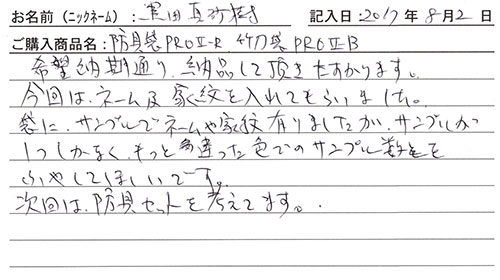 お名前（ニックネーム）：黒田真弥樹 記入日：2017年8月2日
ご購入商品名：防具袋PROⅡ-R、竹刀袋PROⅡB
希望納期通り、納品して頂きたすかります。
今回は、ネーム及家紋を入れてもらいました。
袋に、サンプルでネームや家紋有りましたが、サンプルが
1つしかなく、もっと違った色でのサンプル数を
ふやしてほしいです。
次回は、防具セットを考えてます。